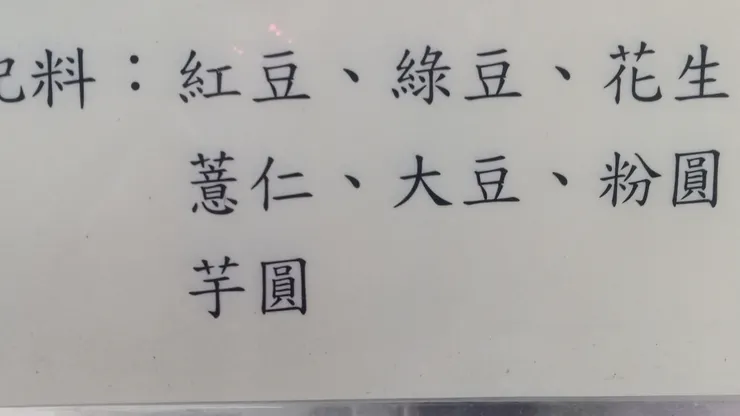 配料：紅豆、綠豆、花生
薏仁、大豆、粉圓
芋圓